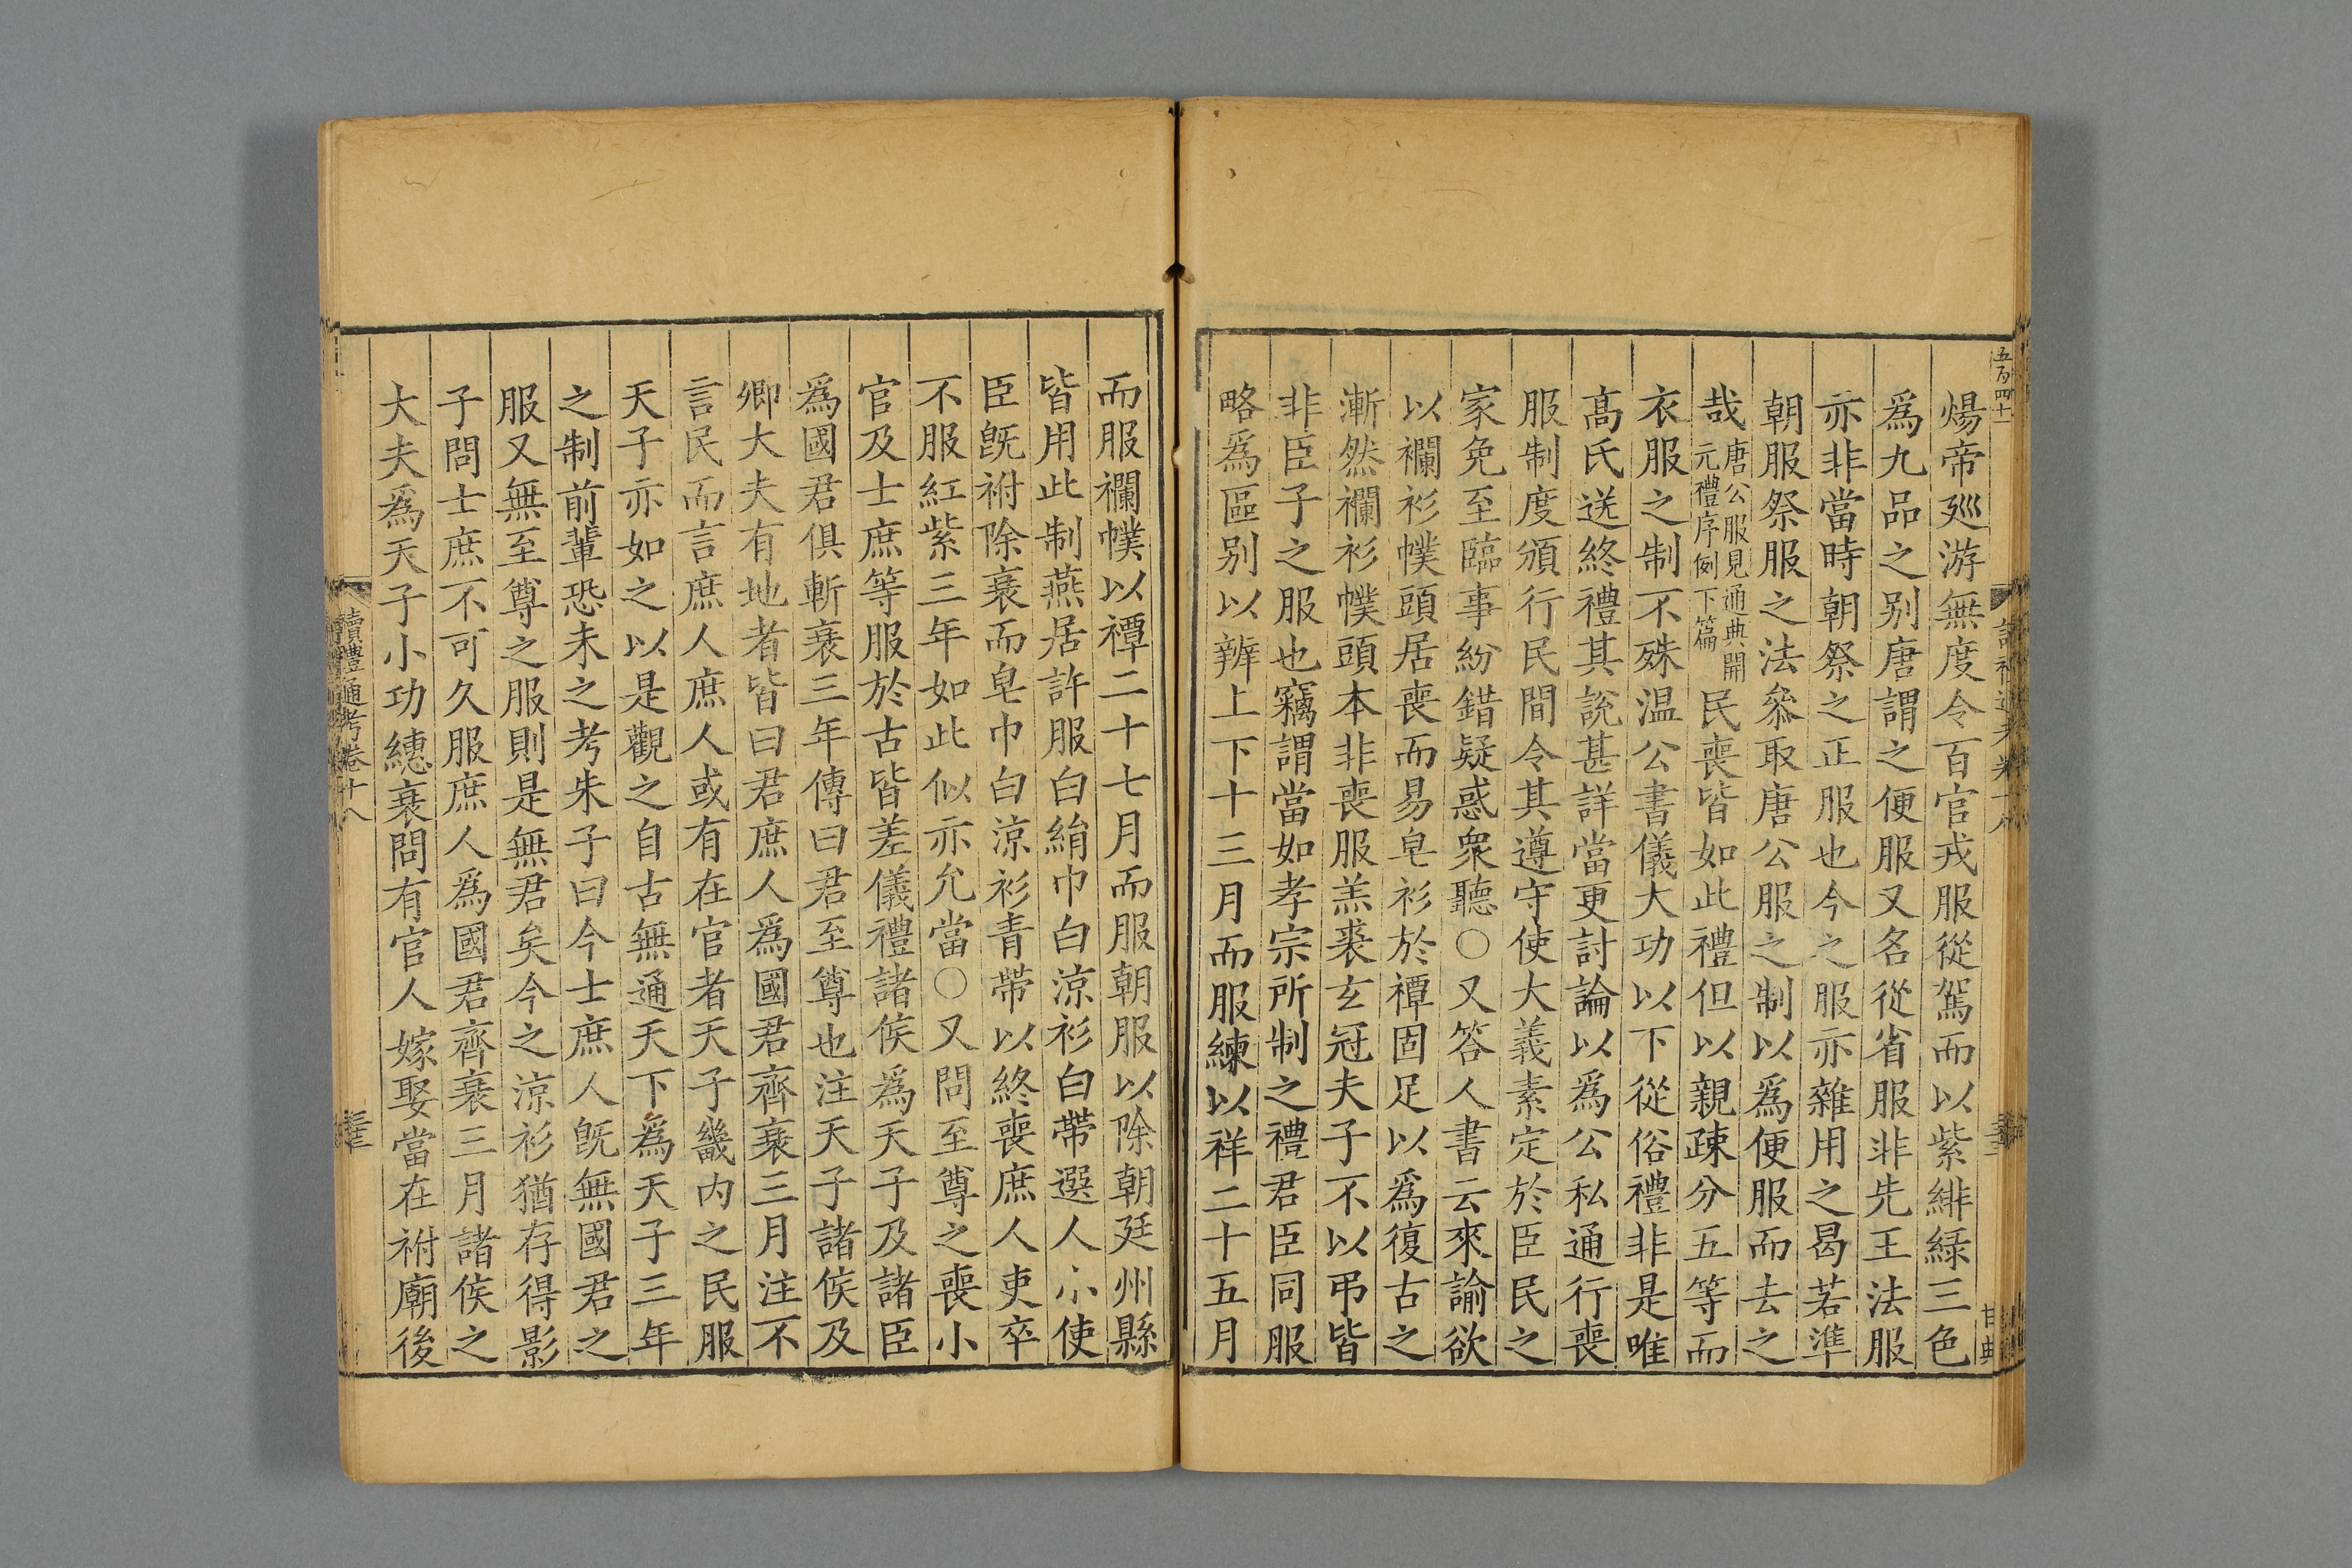 五百四十一
煬帝廵游無度令百官戎服從駕而以紫緋緑三色
爲九品之别唐謂之便服又名從省服非先王法服
亦非當時朝祭之正服也今之服亦雜用之曷若準
朝服祭服之法叅取唐公服之制以爲便服而去之
哉唐公服見通典開元禮序例下篇民喪皆如此禮但以親疎分五等而
衣服之制不殊温公書儀大功以下從俗禮非是唯
髙氏送終禮其說甚詳當更討論以爲公私通行喪
服制度頒行民間令其遵守使大義素定於臣民之
家免至臨事紛錯疑惑衆聽○又答人書云來諭欲
以襴衫幞頭居喪而易皂衫於禫固足以爲復古之
漸然襴衫幞頭本非喪服羔裘玄冠夫子不以弔皆
非臣子之服也竊謂當如孝宗所制之禮君臣同服
略爲區别以辨上下十三月而服練以祥二十五月
而服襴幞以禫二十七月而服朝服以除朝廷州縣
皆用此制燕居許服白絹巾白涼衫白帶選人小使
臣旣祔除衰而皂巾白涼衫青帶以終喪庶人吏卒
不服紅紫三年如此似亦允當○又問至尊之喪小
官及士庶等服於古皆差儀禮諸侯爲天子及諸臣
爲國君俱斬衰三年傳曰君至尊也注天子諸侯及
卿大夫有地者皆曰君庶人爲國君齊衰三月注不
言民而言庶人庶人或有在官者天子畿内之民服
天子亦如之以是觀之自古無通天下爲天子三年
之制前輩恐未之考朱子曰今士庶人旣無國君之
服又無至尊之服則是無君矣今之涼衫猶存得影
子問士庶不可久服庶人爲國君齊衰三月諸侯之
大夫爲天子小功繐衰問有官人嫁娶當在祔廟後
讀禮通考卷十八